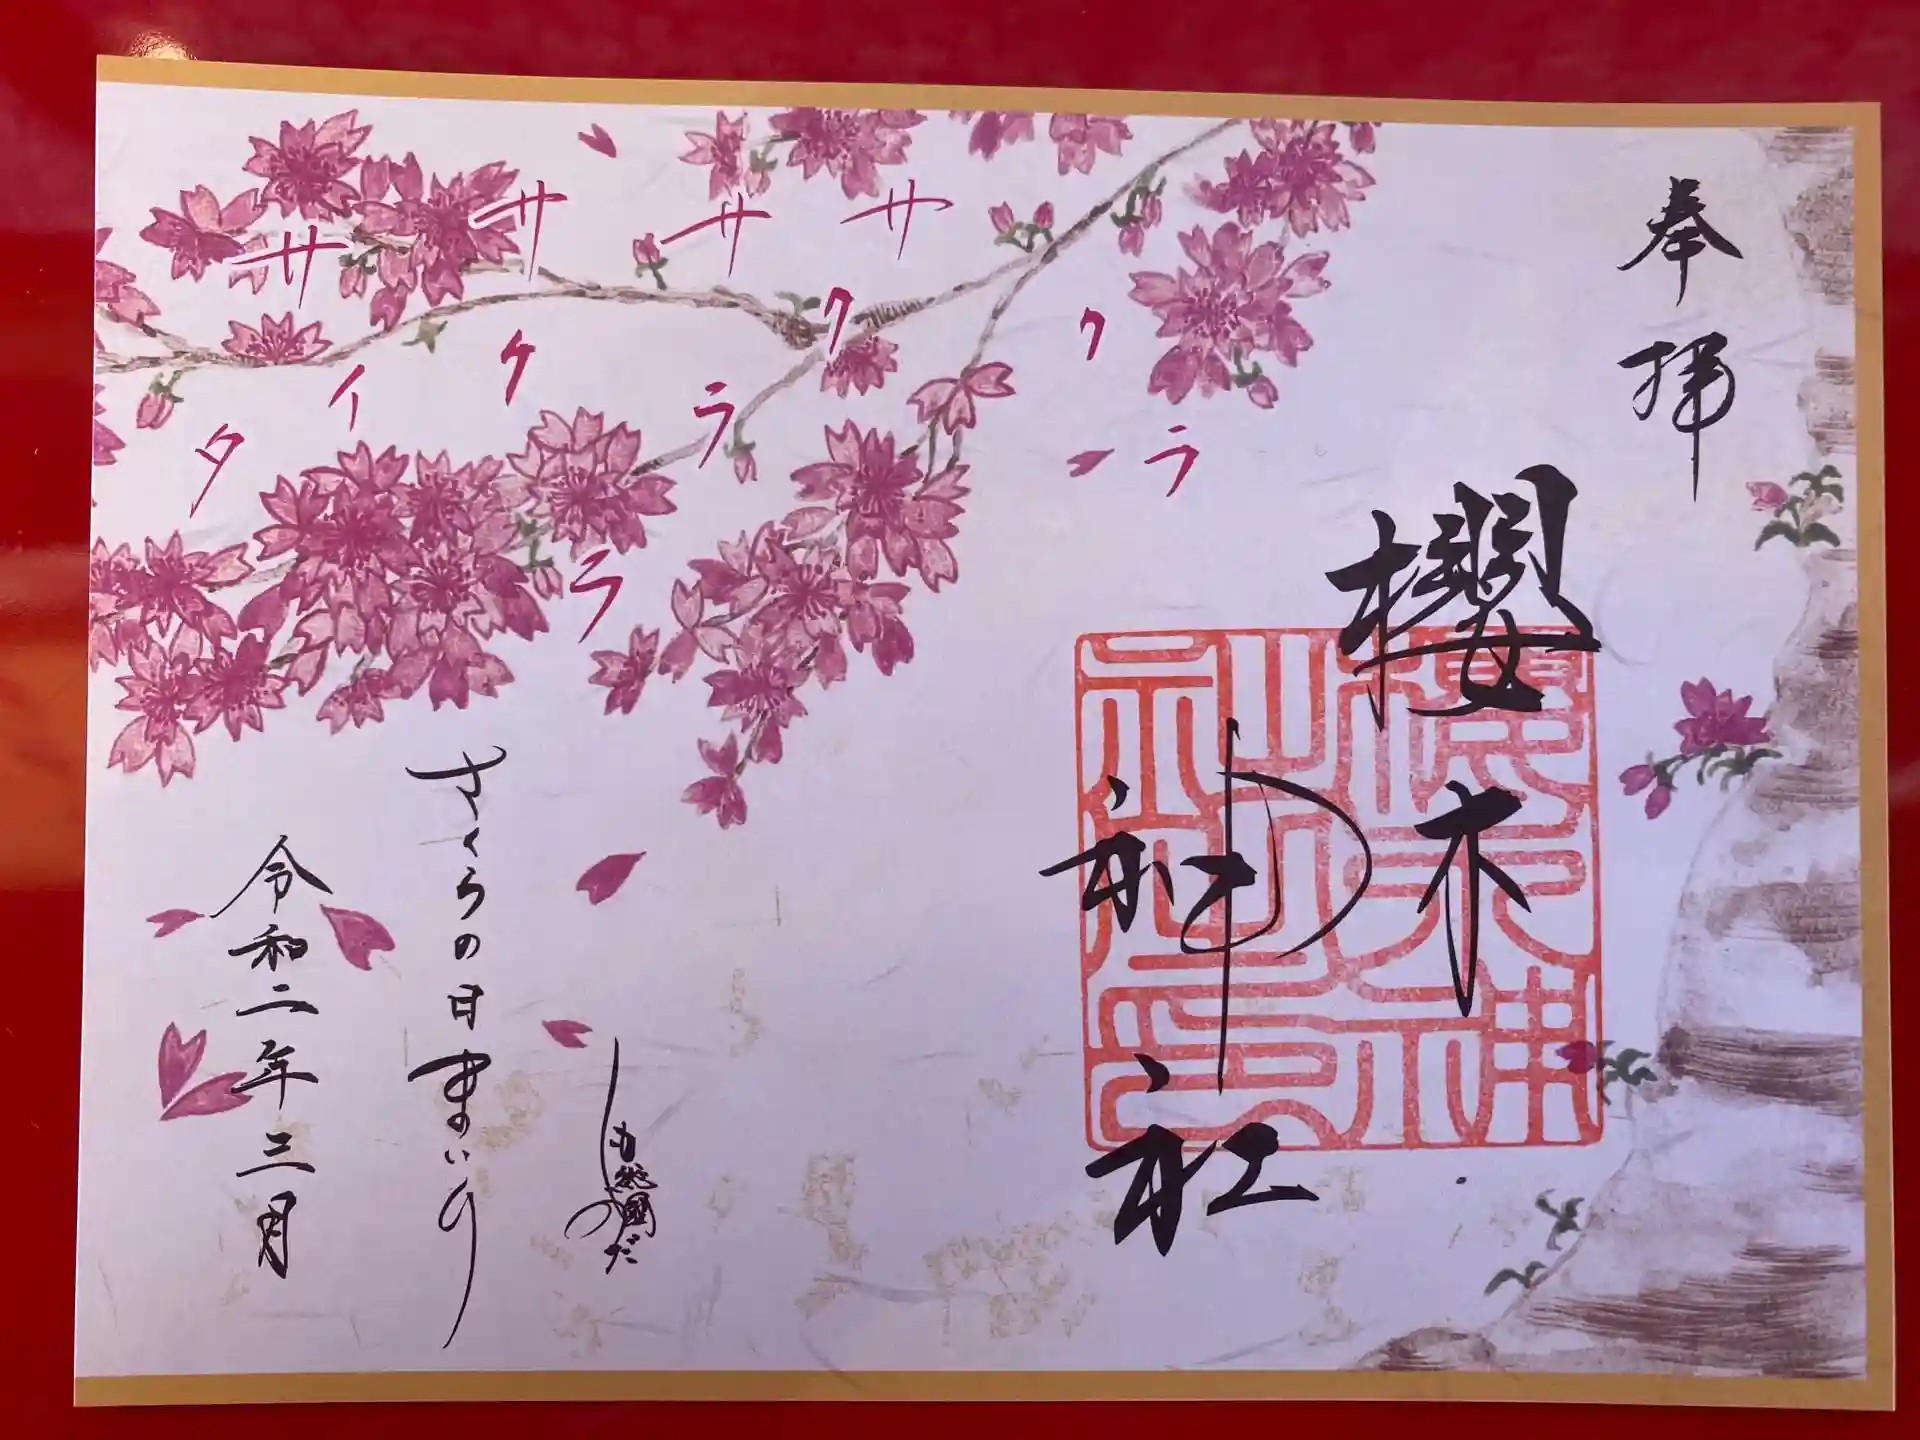 奉拝
櫻木
神社
櫻木神
社之印
サクラ
サクラ
サクラ
サイタ
しも総國のだ
さくらの日まいり
令和二年三月